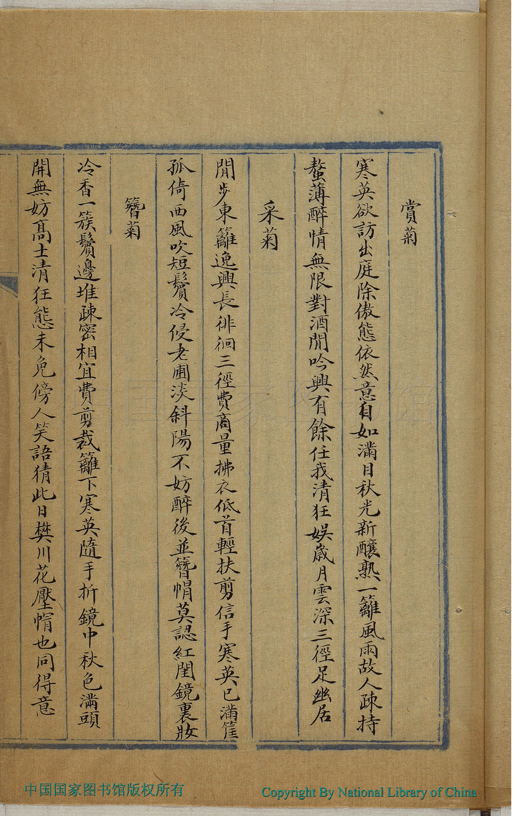 賞菊
寒英欲訪出庭除傲態依然意自如滿目秋光新釀熟一籬風雨故人疎持
螯薄醉情無限對酒閒吟興有餘任我清狂娛歲月雲深三徑足幽居
采菊
閒步東籬逸興長徘徊三徑費商量拂衣低首輕扶剪信手寒英已滿筐
孤倚西風吹短鬢冷侵老圃淡斜陽不妨醉後並簪帽莫認紅閨鏡裏妝
簪菊
冷香一簇鬢邊堆疎密相宜費剪裁籬下寒英隨手折鏡中秋色滿頭
開無妨髙士清狂態未免傍人笑語猜此日樊川花壓帽也同得意
中国国家图书馆版权所有
Copyright By National Library of China